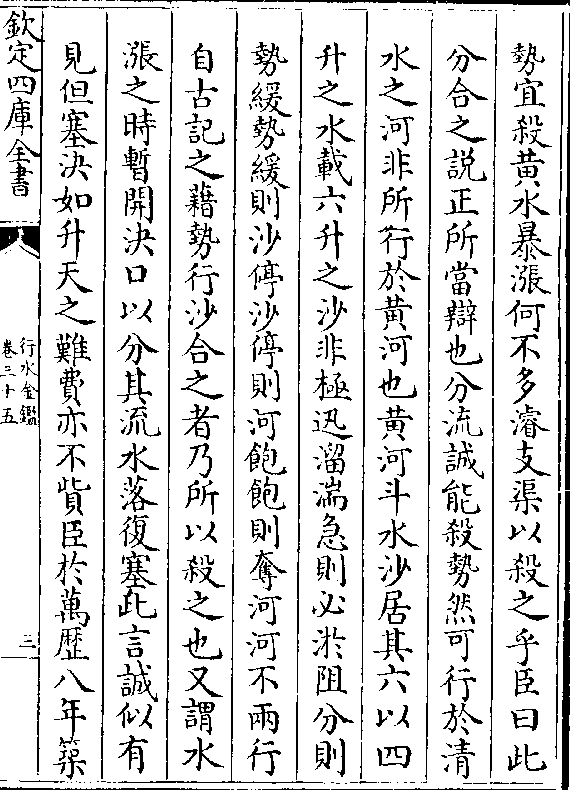 勢宜殺黄水暴漲何不多濬支渠以殺之乎臣曰此
分合之説正所當辯也分流誠能殺勢然可行於清
水之河非所行於黄河也黄河斗水沙居其六以四
升之水載六升之沙非極迅溜湍急則必淤阻分則
勢緩勢緩則沙停沙停則河飽飽則奪河河不兩行
自古記之藉勢行沙合之者乃所以殺之也又謂水
漲之時暫開決口以分其流水落復塞此言誠似有
見但塞決如升天之難費亦不貲臣於萬歴八年築
欽定四庫全書
行水金鑑
卷三十五
三